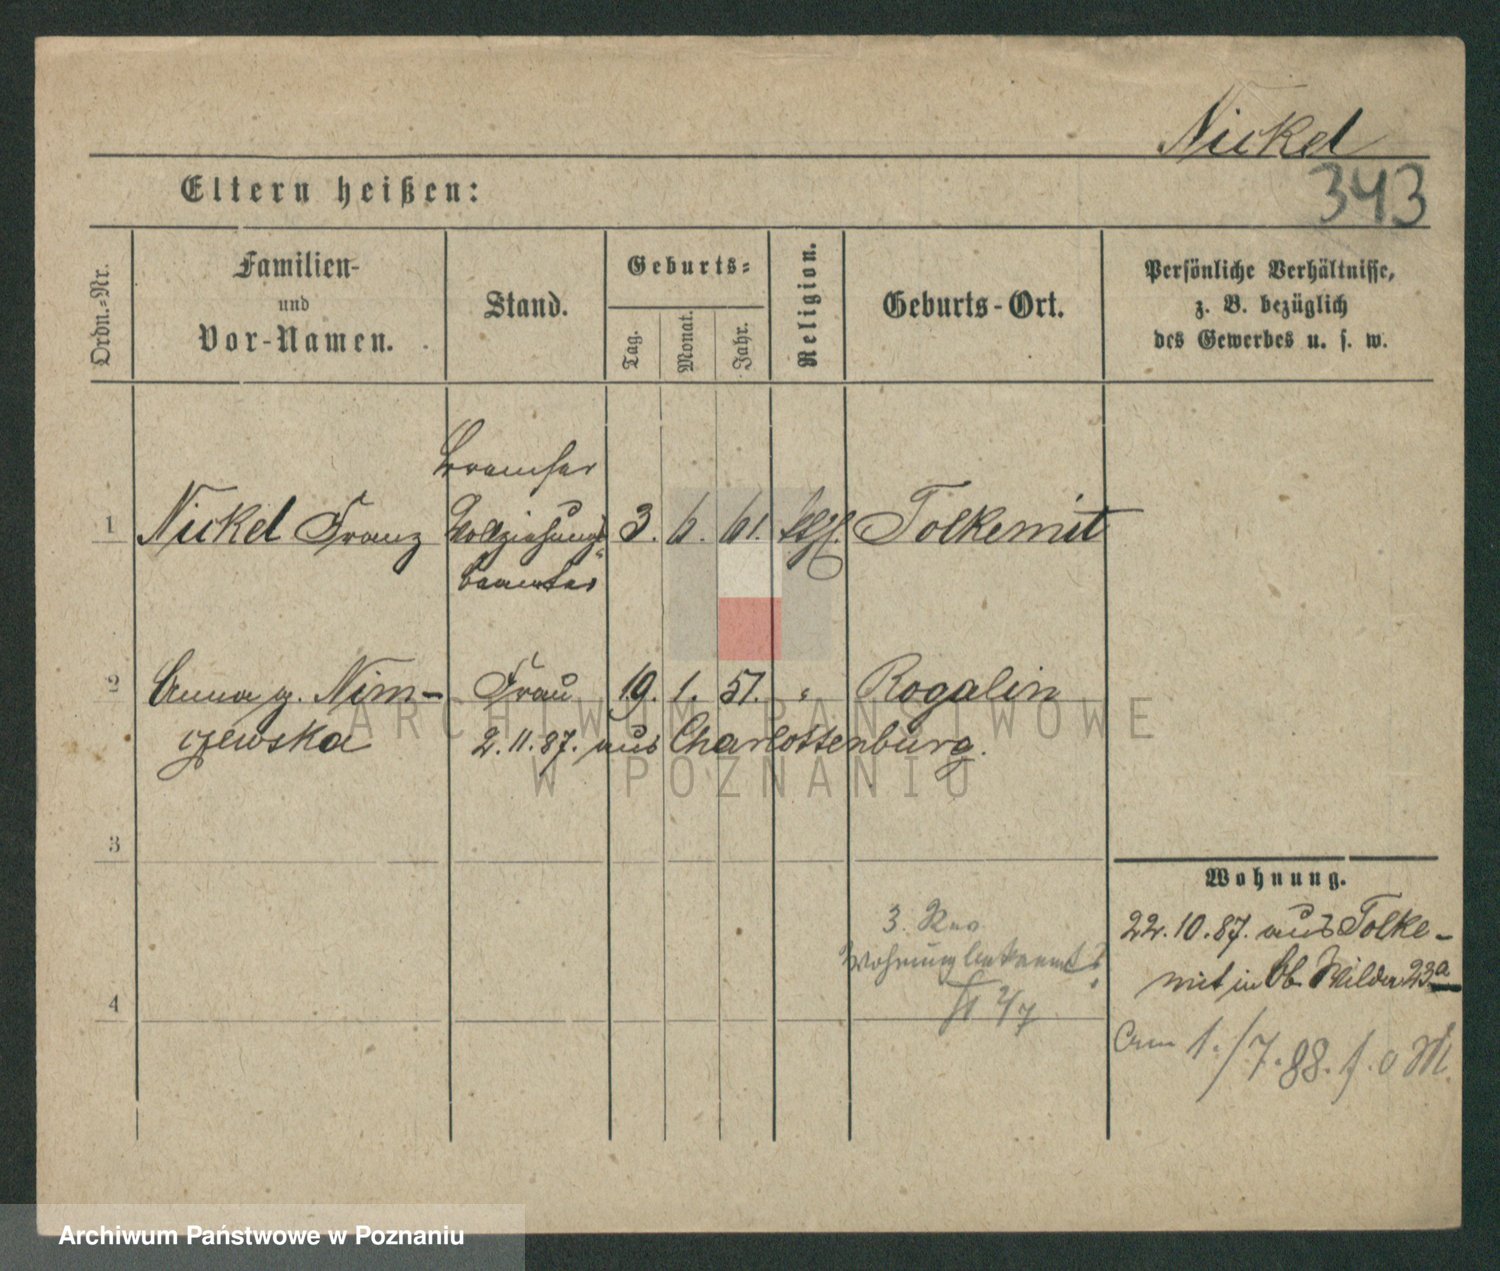 Nickel
343
Eltern heißen:
Ordn.-Nr.
Familien-
und
Vor-Namen.
Stand.
Geburts-
Tag.
Monat.
Jahr.
Religion.
Geburts-Ort.
Persönliche Verhältnisse,
z. B. bezüglich
des Gewerbes u. s. w.
1
Nickel Franz
Vollziehungs-
beamter
3. 6. 61.
Tolkemit
2
Anna g. Nim-
czewska
Frau
19. 1. 51. "
Rogalin
2.11.87. aus Charlottenburg.
3
4
3. Rev.
Wohnung unbekannt
2/7
Wohnung.
22.10.87. aus Tolke-
mit in bb. Wilda 23a
Am 1./7.88. f. o M
ARCHIWUM PAŃSTWOWE
W POZNANIU
Archiwum Państwowe w Poznaniu